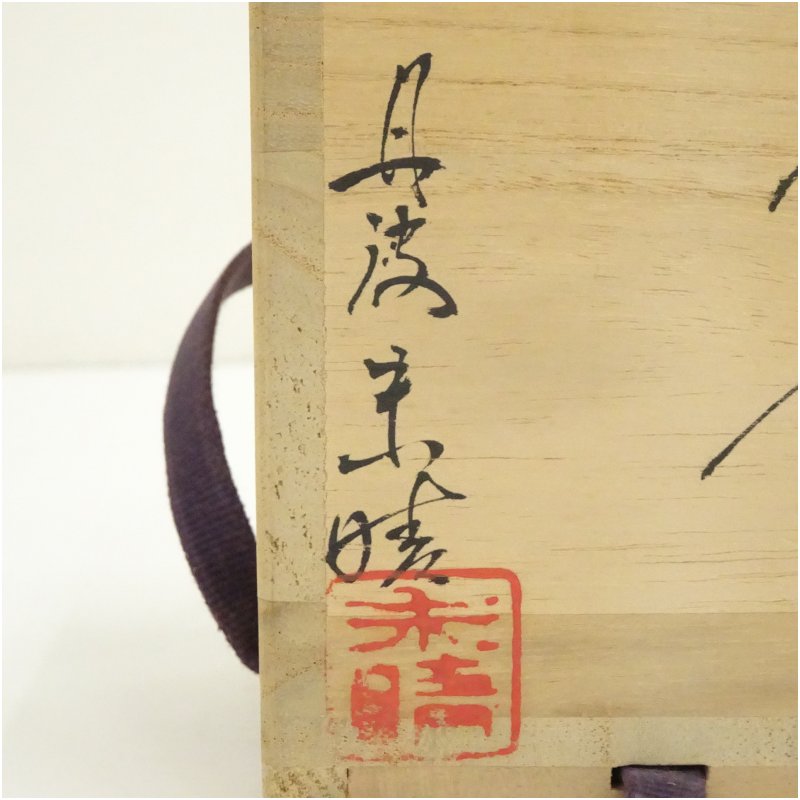 丹波末晴
末晴